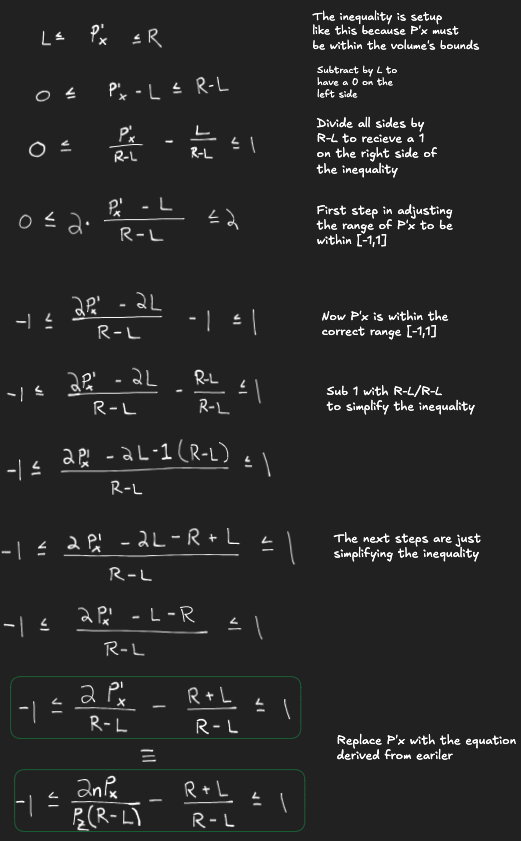 L ≤ P'x ≤ R
The inequality is setup
like this because P'x must
be within the volume's bounds
0 ≤ P'x - L ≤ R-L
Subtract by L to
have a 0 on the
left side
0 ≤ P'x/(R-L) - L/(R-L) ≤ 1
Divide all sides by
R-L to recieve a 1
on the right side of
the inequality
0 ≤ 2 · (P'x - L)/(R-L) ≤ 2
First step in adjusting
the range of P'x to be
within [-1,1]
-1 ≤ (2P'x - 2L)/(R-L) - 1 ≤ 1
Now P'x is within the
correct range [-1,1]
-1 ≤ (2P'x - 2L)/(R-L) - (R-L)/(R-L) ≤ 1
Sub 1 with R-L/R-L
to simplify the inequality
-1 ≤ (2P'x - 2L-1(R-L))/(R-L) ≤ 1
-1 ≤ (2P'x - 2L - R + L)/(R-L) ≤ 1
The next steps are just
simplifying the inequality
-1 ≤ (2P'x - L - R)/(R-L) ≤ 1
-1 ≤ 2P'x/(R-L) - (R+L)/(R-L) ≤ 1
≡
Replace P'x with the equation
derived from eariler
-1 ≤ 2nPx/(Pz(R-L)) - (R+L)/(R-L) ≤ 1